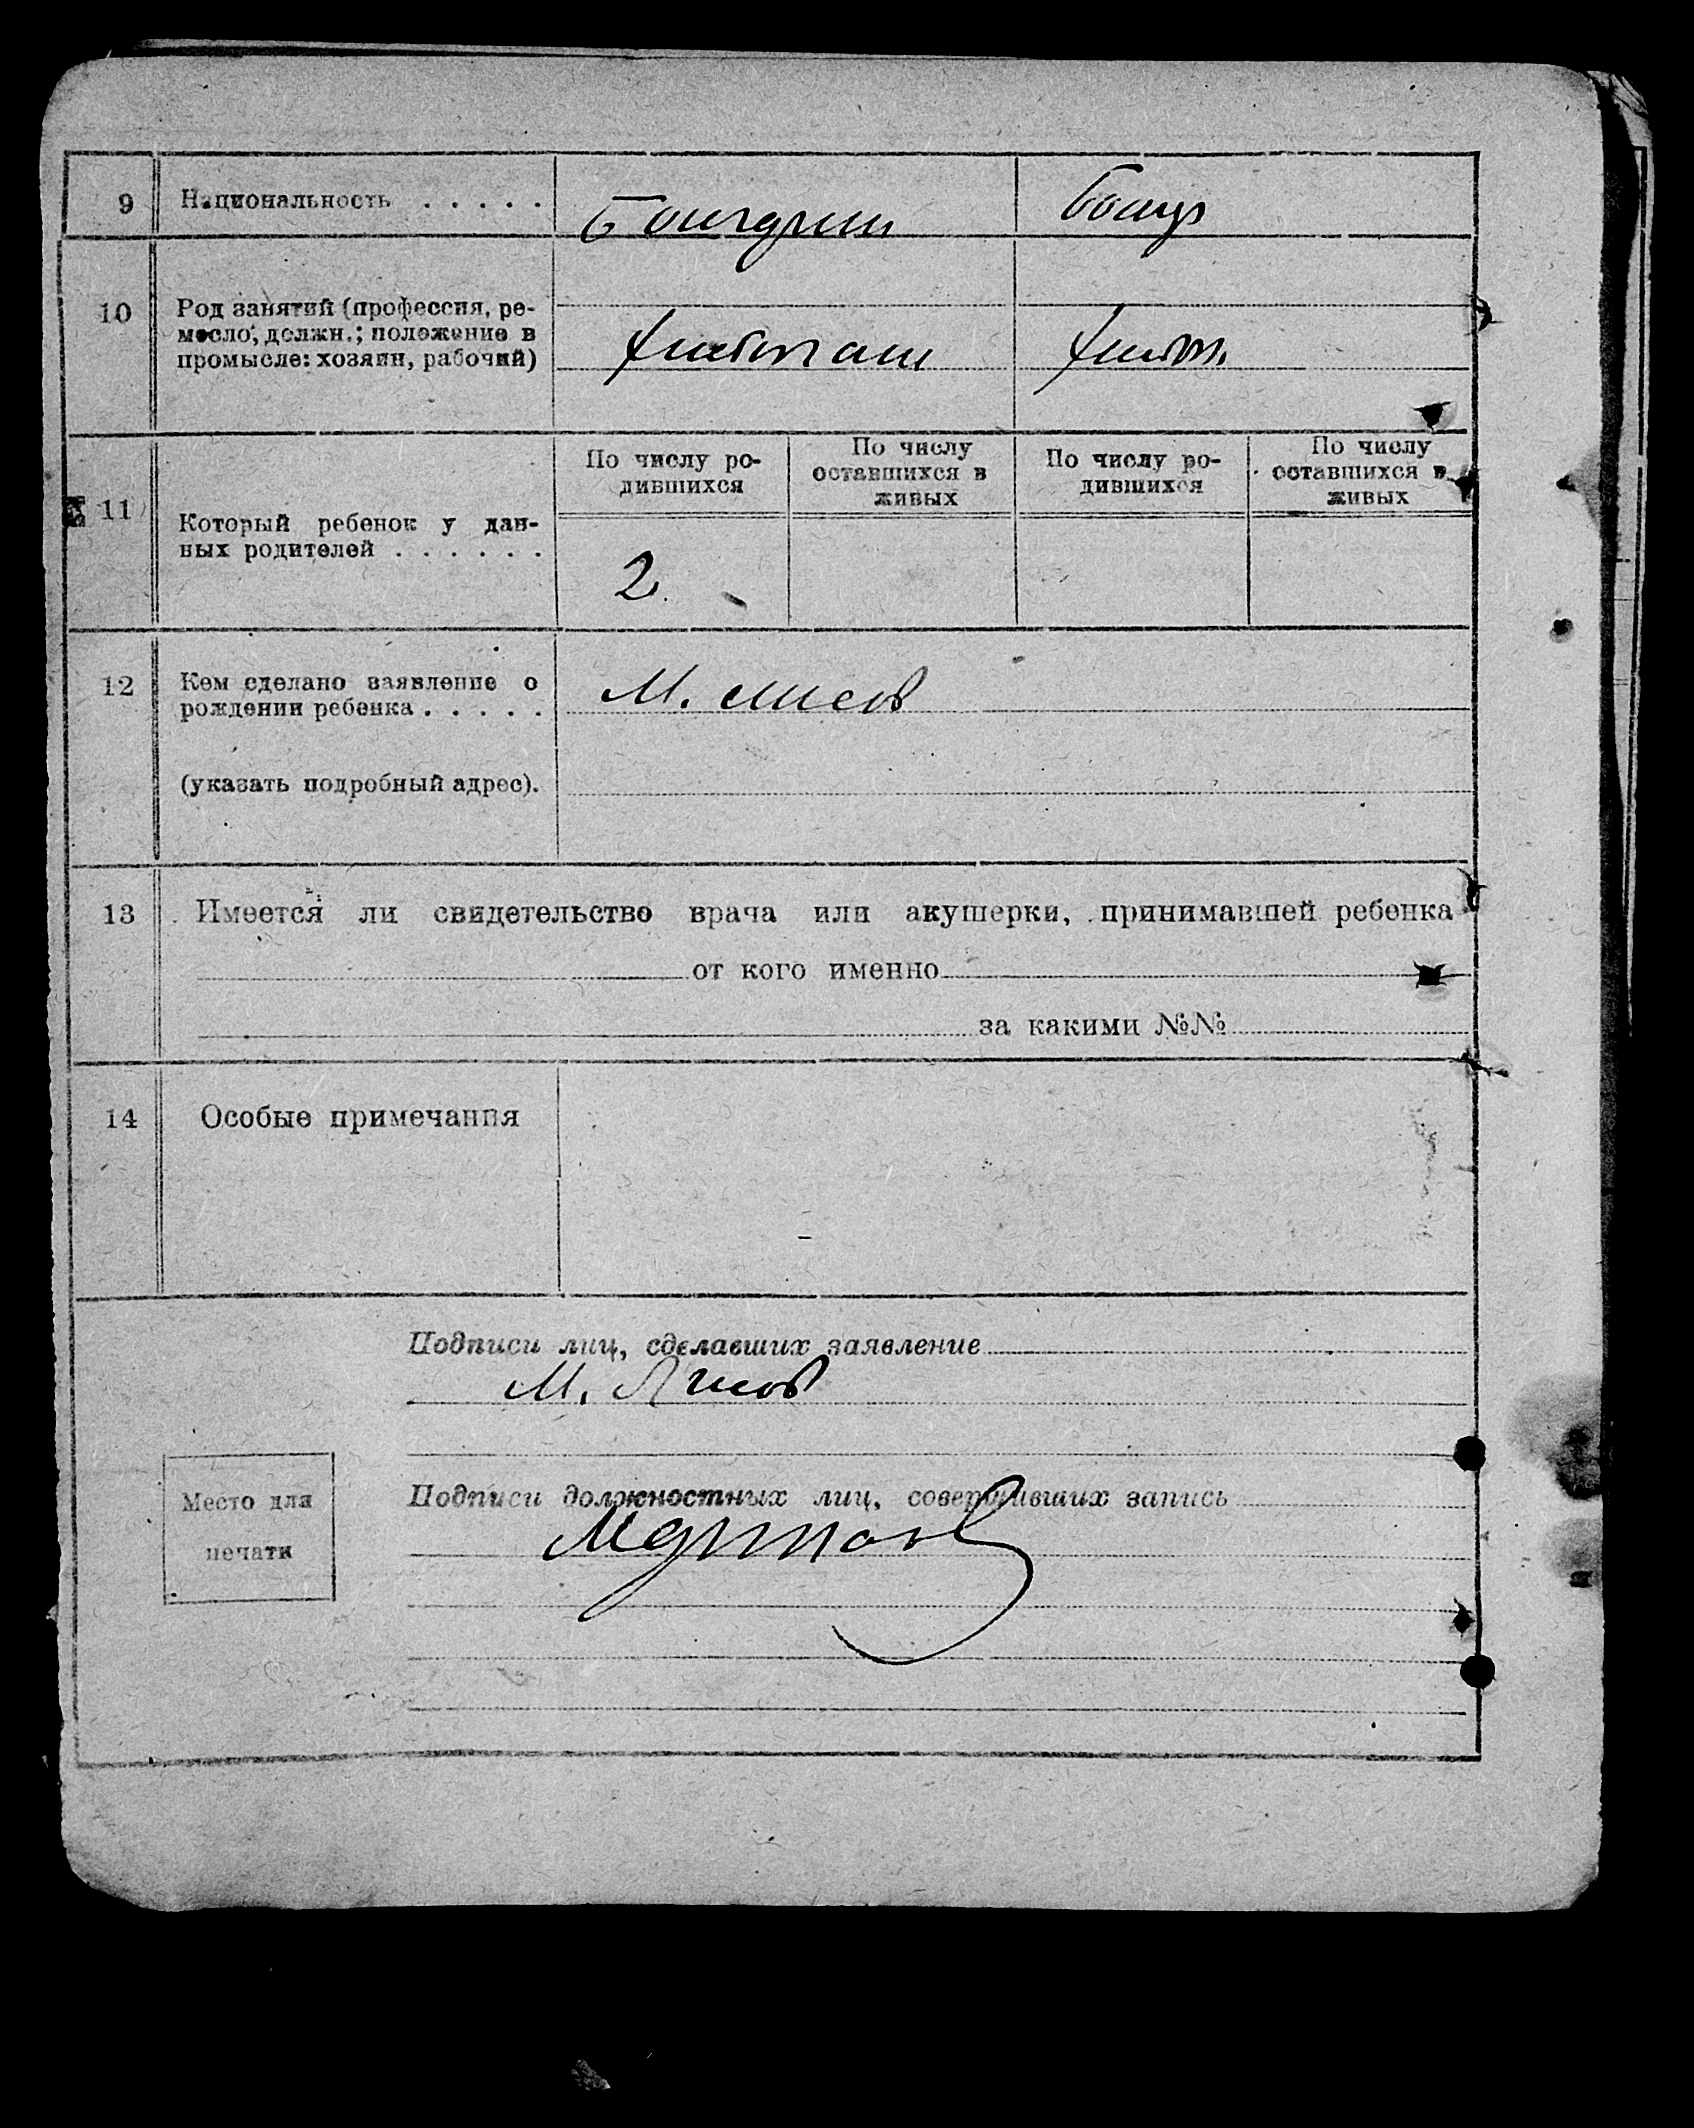 9 Национальность . . . . . Бошдрин Бошур
10 Род занятий (профессия, ре-
месло, должн.; положение в
промысле: хозяин, рабочий)
Хлебопаш Хлебоп.
11 Который ребенок у дан-
ных родителей . . . . . .
По числу ро-
дившихся
По числу
оставшихся в
живых
По числу ро-
дившихся
По числу
оставшихся в
живых
2
12 Кем сделано заявление о
рождении ребенка . . . . .
М. Лисов
(указать подробный адрес).
13 Имеется ли свидетельство врача или акушерки, принимавшей ребенка
от кого именно
за какими №№
14 Особые примечания
Подписи лиц, сделавших заявление
М. Лисов
Место для
печати
Подписи должностных лиц, совершивших запись